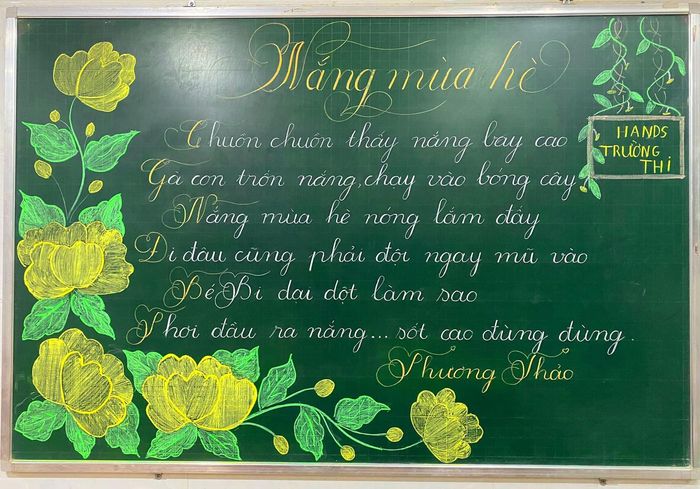 Nắng mùa hè
HANDS
TRƯỜNG
THI
Chuồn chuồn thấy nắng bay cao
Gà con trốn nắng, chạy vào bóng cây
Nắng mùa hè nóng lắm đấy
Đi đâu cũng phải đội ngay mũ vào
Bé Bi dại dột làm sao
Phơi đầu ra nắng... sốt cao đùng đùng.
Phương Thảo